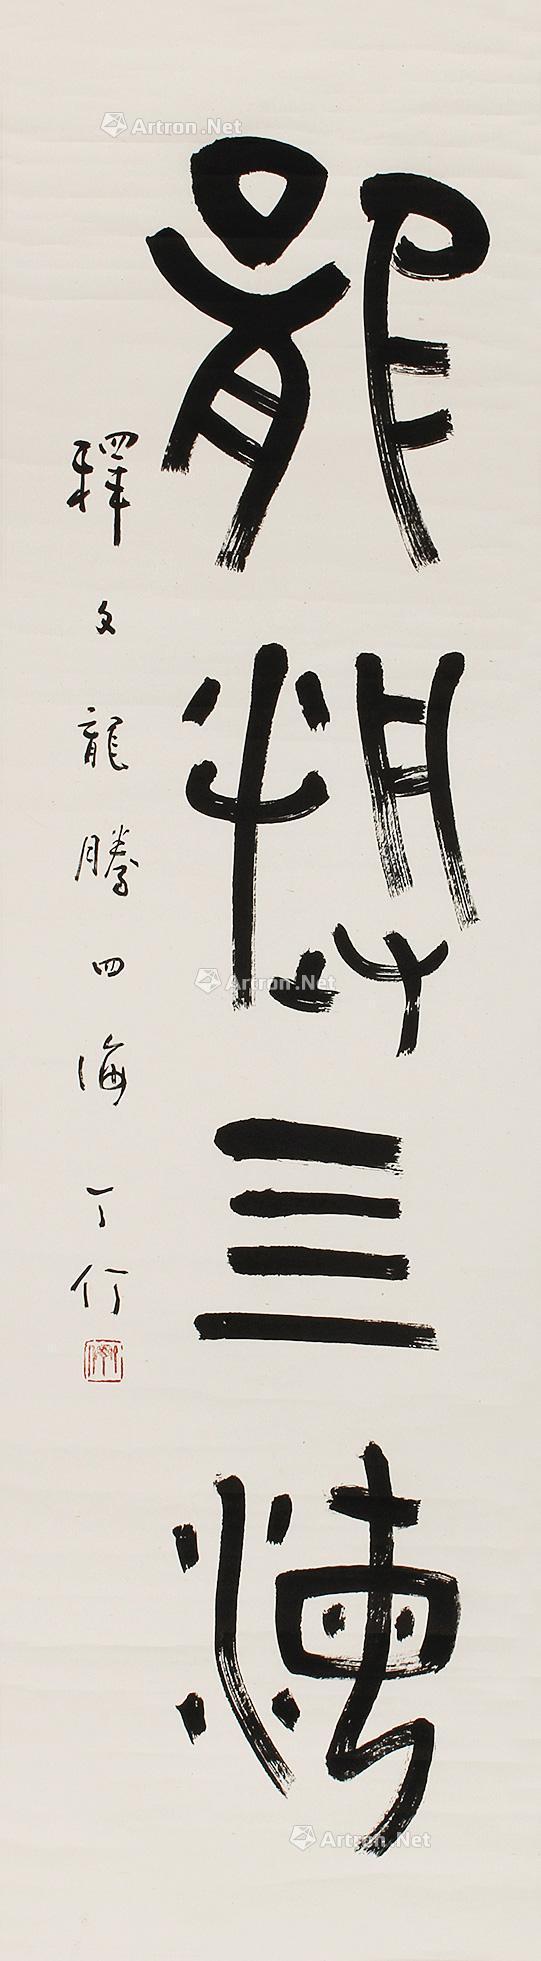 龍騰三海
釋文龍騰四海 丁衍
Artron.Net
Artron.Net
Artron.Net